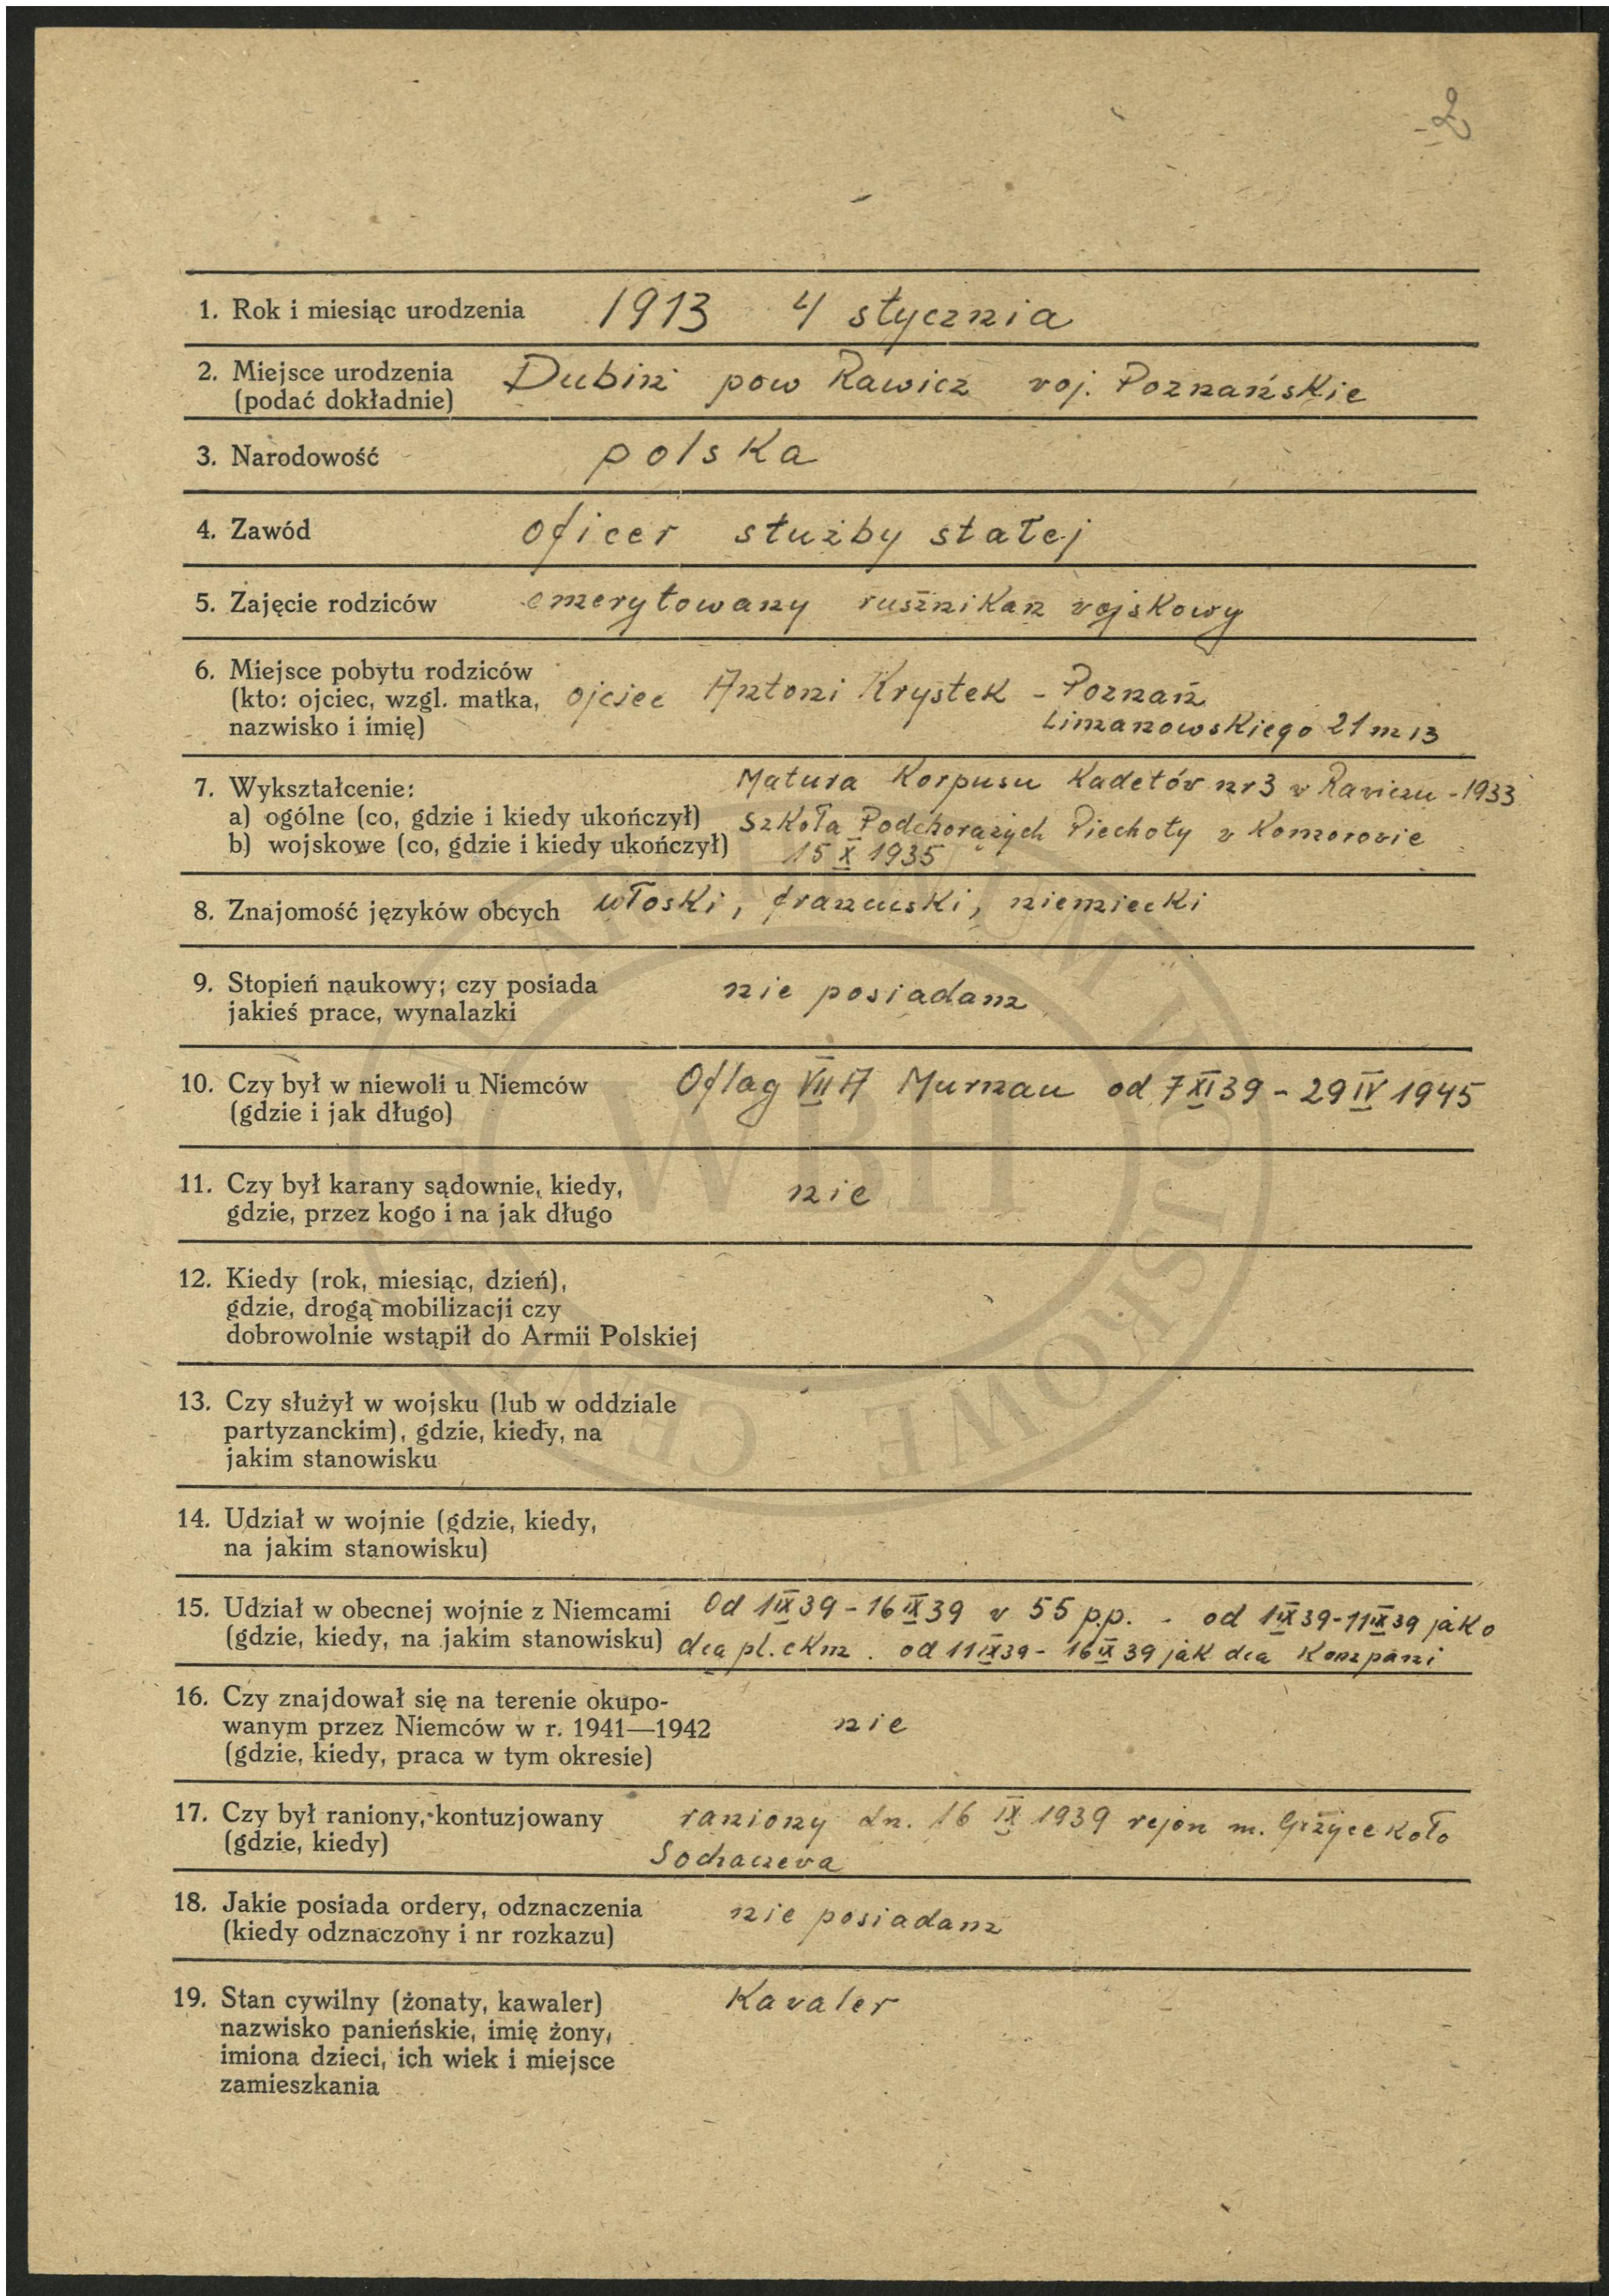 2
1. Rok i miesiąc urodzenia 1913 4 stycznia
2. Miejsce urodzenia Dubin pow Rawicz woj. Poznańskie
(podać dokładnie)
3. Narodowość polska
4. Zawód oficer służby stałej
5. Zajęcie rodziców emerytowany rusznikaz wojskowy
6. Miejsce pobytu rodziców
(kto: ojciec, wzgl. matka, ojciec Antoni Krystek - Poznań
nazwisko i imię) Limanowskiego 21 m 13
7. Wykształcenie: Matura Korpusu Kadetów nr 3 w Rawiczu - 1933
a) ogólne (co, gdzie i kiedy ukończył) Szkoła Podchorążych Piechoty w Komorowie
b) wojskowe (co, gdzie i kiedy ukończył) 15 X 1935
8. Znajomość języków obcych włoski, francuski, niemiecki
9. Stopień naukowy; czy posiada nie posiadam
jakieś prace, wynalazki
10. Czy był w niewoli u Niemców Oflag VII A Murnau od 7 XI 39 - 29 IV 1945
(gdzie i jak długo)
11. Czy był karany sądownie, kiedy, nie
gdzie, przez kogo i na jak długo
12. Kiedy (rok, miesiąc, dzień),
gdzie, drogą mobilizacji czy
dobrowolnie wstąpił do Armii Polskiej
13. Czy służył w wojsku (lub w oddziale
partyzanckim), gdzie, kiedy, na
jakim stanowisku
14. Udział w wojnie (gdzie, kiedy,
na jakim stanowisku)
15. Udział w obecnej wojnie z Niemcami Od 1 IX 39 - 16 IX 39 w 55 p.p. - od 1 IX 39 - 11 IX 39 jako
(gdzie, kiedy, na jakim stanowisku) dca pl. ckm. od 11 IX 39 - 16 IX 39 jak dca kompani
16. Czy znajdował się na terenie okupo-
wanym przez Niemców w r. 1941—1942 nie
(gdzie, kiedy, praca w tym okresie)
17. Czy był raniony, kontuzjowany raniony dn. 16 IX 1939 rejon m. Giżyce koło
(gdzie, kiedy) Sochaczewa
18. Jakie posiada ordery, odznaczenia nie posiadam
(kiedy odznaczony i nr rozkazu)
19. Stan cywilny (żonaty, kawaler) Kawaler
nazwisko panieńskie, imię żony,
imiona dzieci, ich wiek i miejsce
zamieszkania
WBH